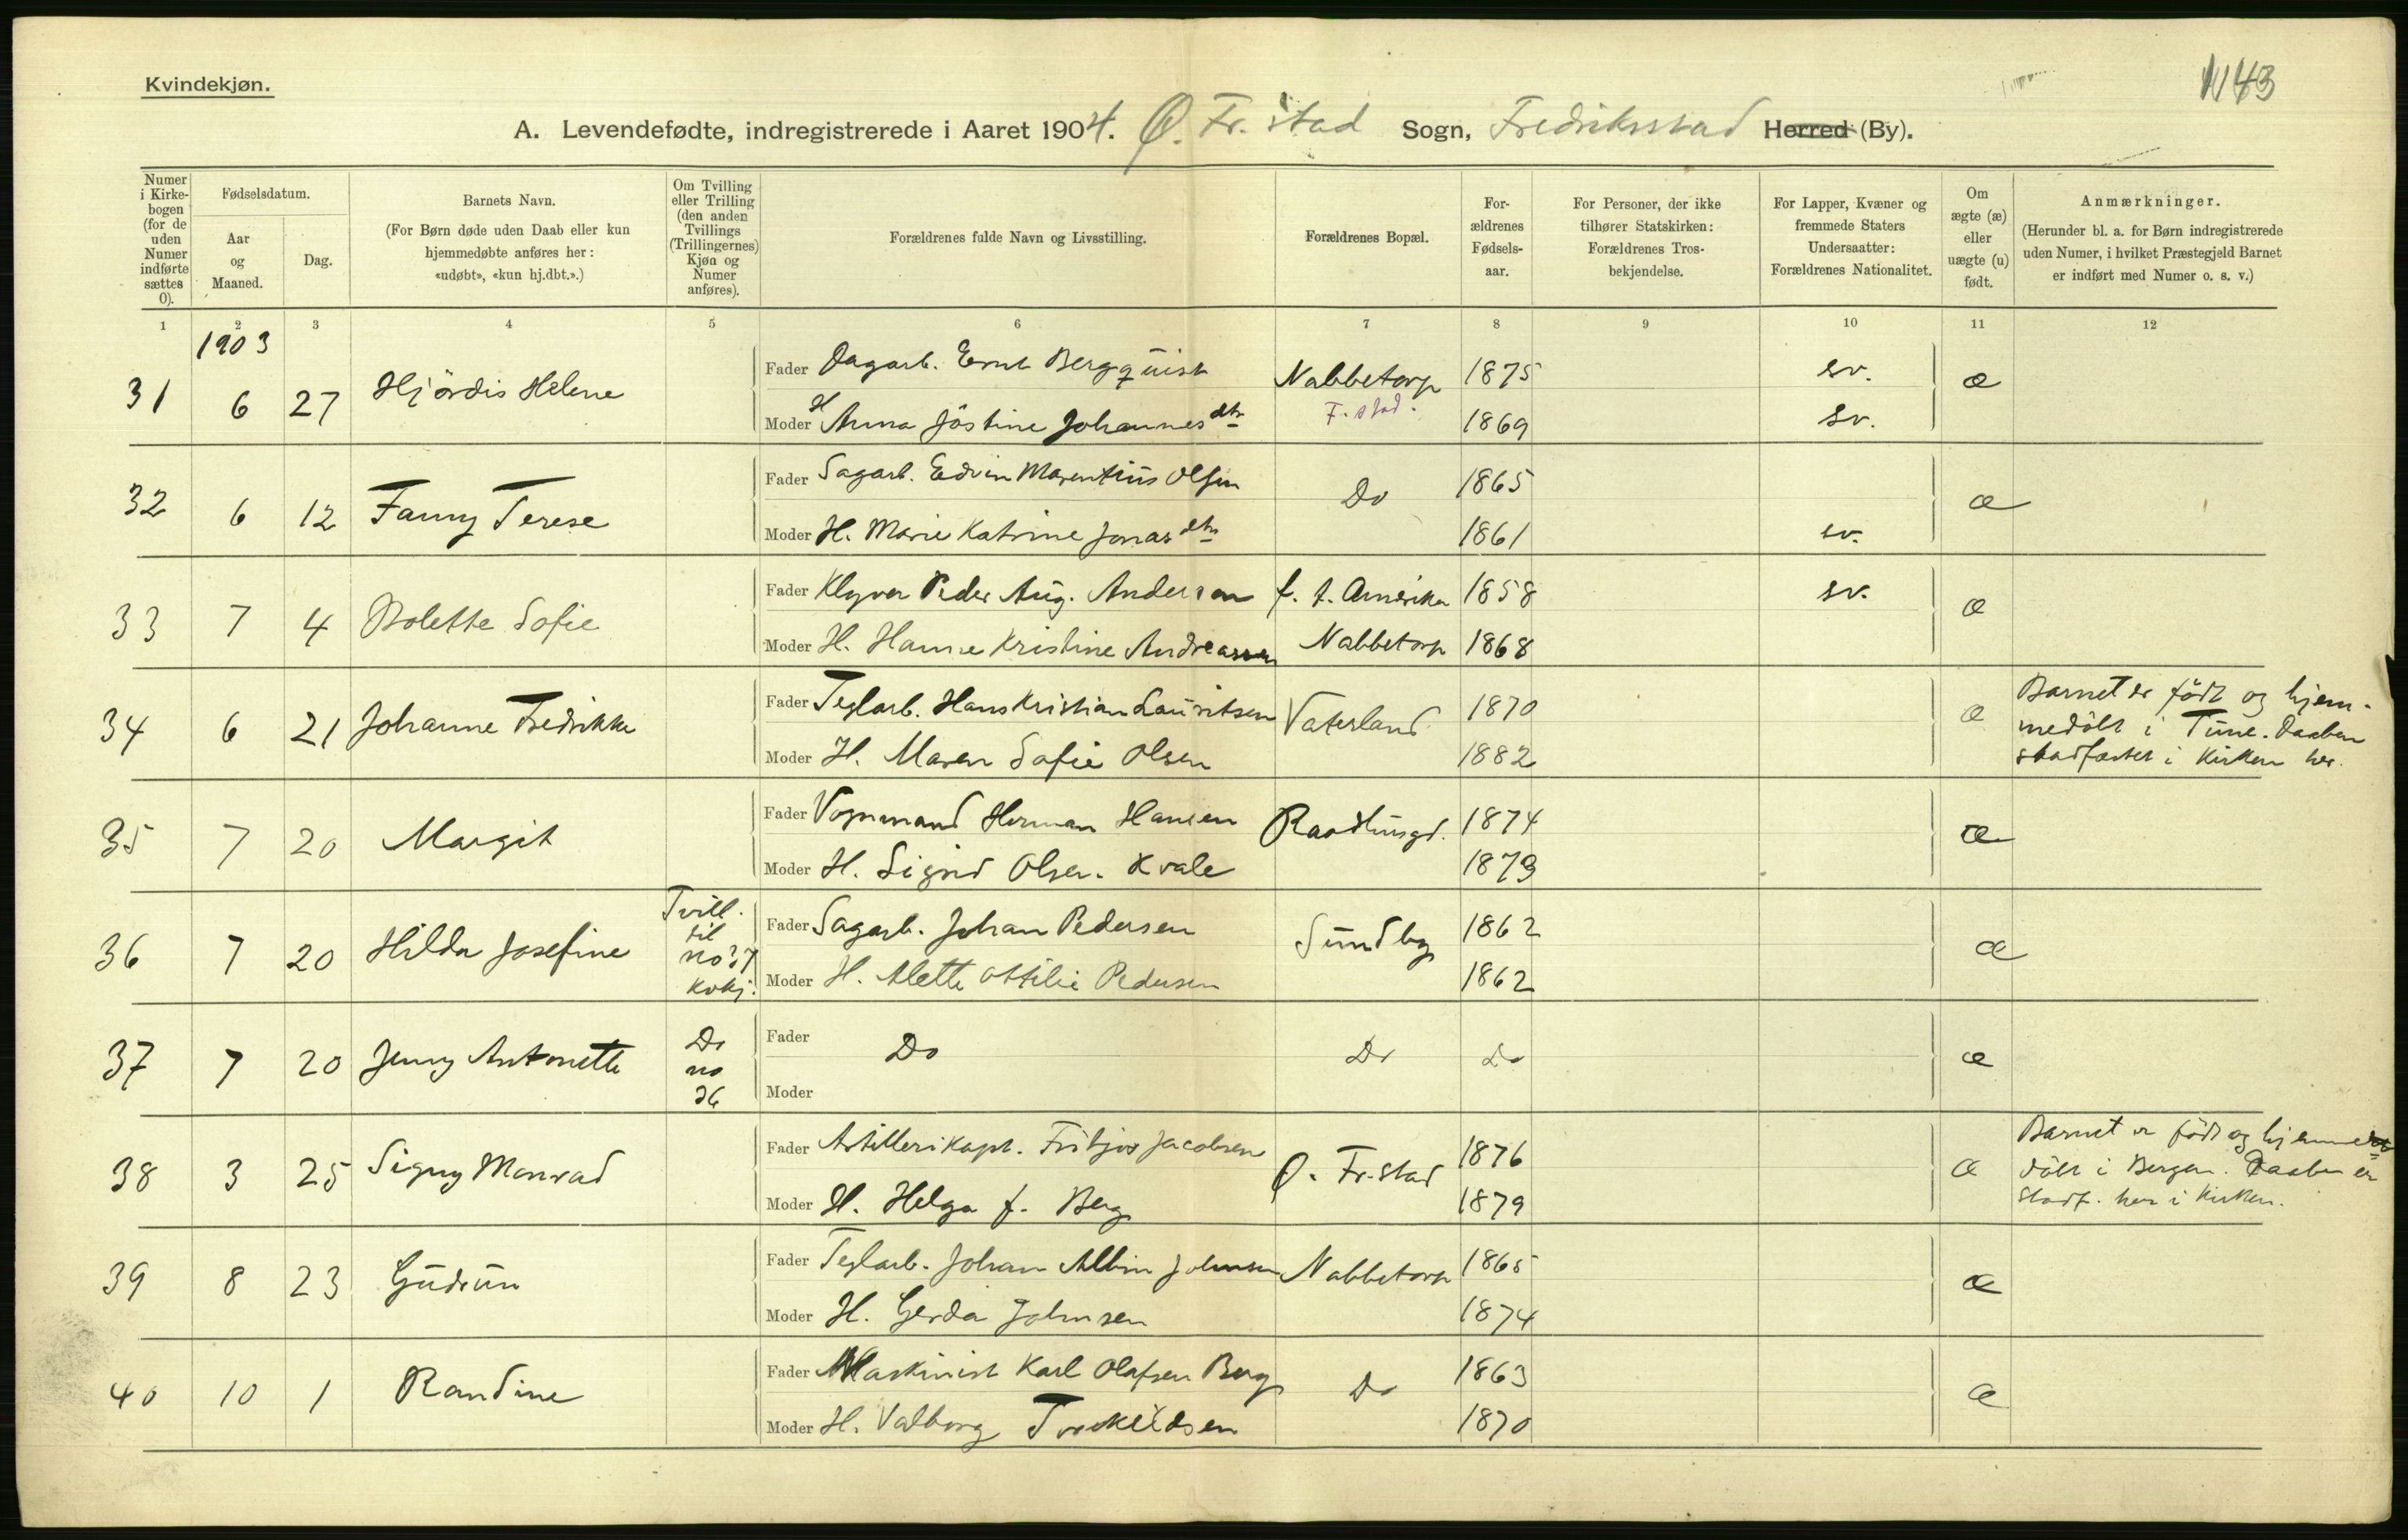 Kvindekjøn.
1143
A. Levendefødte, indregistrerede i Aaret 1904. Ø. Fr. stad Sogn, Fredriksstad Herred (By).
Numer i Kirkebogen (for de uden Numer indførte sættes 0).
Fødselsdatum.
Aar og Maaned.
Dag.
Barnets Navn.
(For Børn døde uden Daab eller kun hjemmedøbte anføres her: «udøbt», «kun hj.dbt.».)
Om Tvilling eller Trilling (den anden Tvillings (Trillingernes) Kjøn og Numer anføres).
Forældrenes fulde Navn og Livsstilling.
Forældrenes Bopæl.
Forældrenes Fødselsaar.
For Personer, der ikke tilhører Statskirken: Forældrenes Trosbekjendelse.
For Lapper, Kvæner og fremmede Staters Undersaatter: Forældrenes Nationalitet.
Om ægte (æ) eller uægte (u) født.
Anmærkninger.
(Herunder bl. a. for Børn indregistrerede uden Numer, i hvilket Præstegjeld Barnet er indført med Numer o. s. v.)
1 2 3 4 5 6 7 8 9 10 11 12
1903
31 6 27 Hjördis Helene Fader Dagarb. Ernst Bergquist Nabbetorp F.stad. 1875 sv. æ
Moder H Anna Jöstine Johannesdtr 1869 sv.
32 6 12 Fanny Terese Fader Sagarb. Edvin Marentius Olsen Do 1865 æ
Moder H. Marie Katrine Jonasdtr 1861 sv.
33 7 4 Bolette Sofie Fader Klyver Peder Aug. Anderson f. t. Amerika 1858 sv. æ
Moder H. Hanne Kristine Andreassen Nabbetorp 1868
34 6 21 Johanne Fredrikke Fader Teglarb. Hans Kristian Lauritsen Vaterland 1870 æ
Moder H. Maren Sofie Olsen 1882
Barnet er födt og hjem-
medöbt i Tune. Daaben
stadfæstet i Kirken her.
35 7 20 Margit Fader Vognmand Herman Hansen Raadhusgd. 1874 æ
Moder H. Sigrid Olsen Kvale 1879
36 7 20 Hilda Josefine Tvill. til no 37 kvkj. Fader Sagarb. Johan Pedersen Sundby 1862 æ
Moder H. Alette Ottilie Pedersen 1862
37 7 20 Jenny Antonette Do no 36 Fader Do Do Do æ
Moder
38 3 25 Signy Monrad Fader Artillerikapt. Fritjov Jacobsen Ø. Fr.stad 1876 æ
Moder H. Helga f. Berg 1879
Barnet er födt og hjemme
döbt i Bergen. Daaben er
stadf. her i Kirken.
39 8 23 Gudrun Fader Teglarb. Johan Albin Johnsen Nabbetorp 1865 æ
Moder H. Gerda Johnsen 1874
40 10 1 Randine Fader Maskinist Karl Olafsen Berg Do 1863 æ
Moder H. Valborg Torkildsen 1870